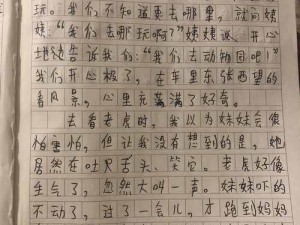 玩。我们不知道要去哪里，就问姨
姨：“我们去哪玩啊？”姨姨说，开心
地告诉我们：“我们去动物园吧！”
我们开心极了，在车里东张西望的
看风景，心里充满满了好奇。
去看老虎时，我以为妹妹会像
怕害怕，但让我没有想到的是，她
居然在吐只舌头、笑它。老虎好像
生气了，忽然大叫一声。妹妹吓的
不动了，过了一会儿，才跑到妈妈